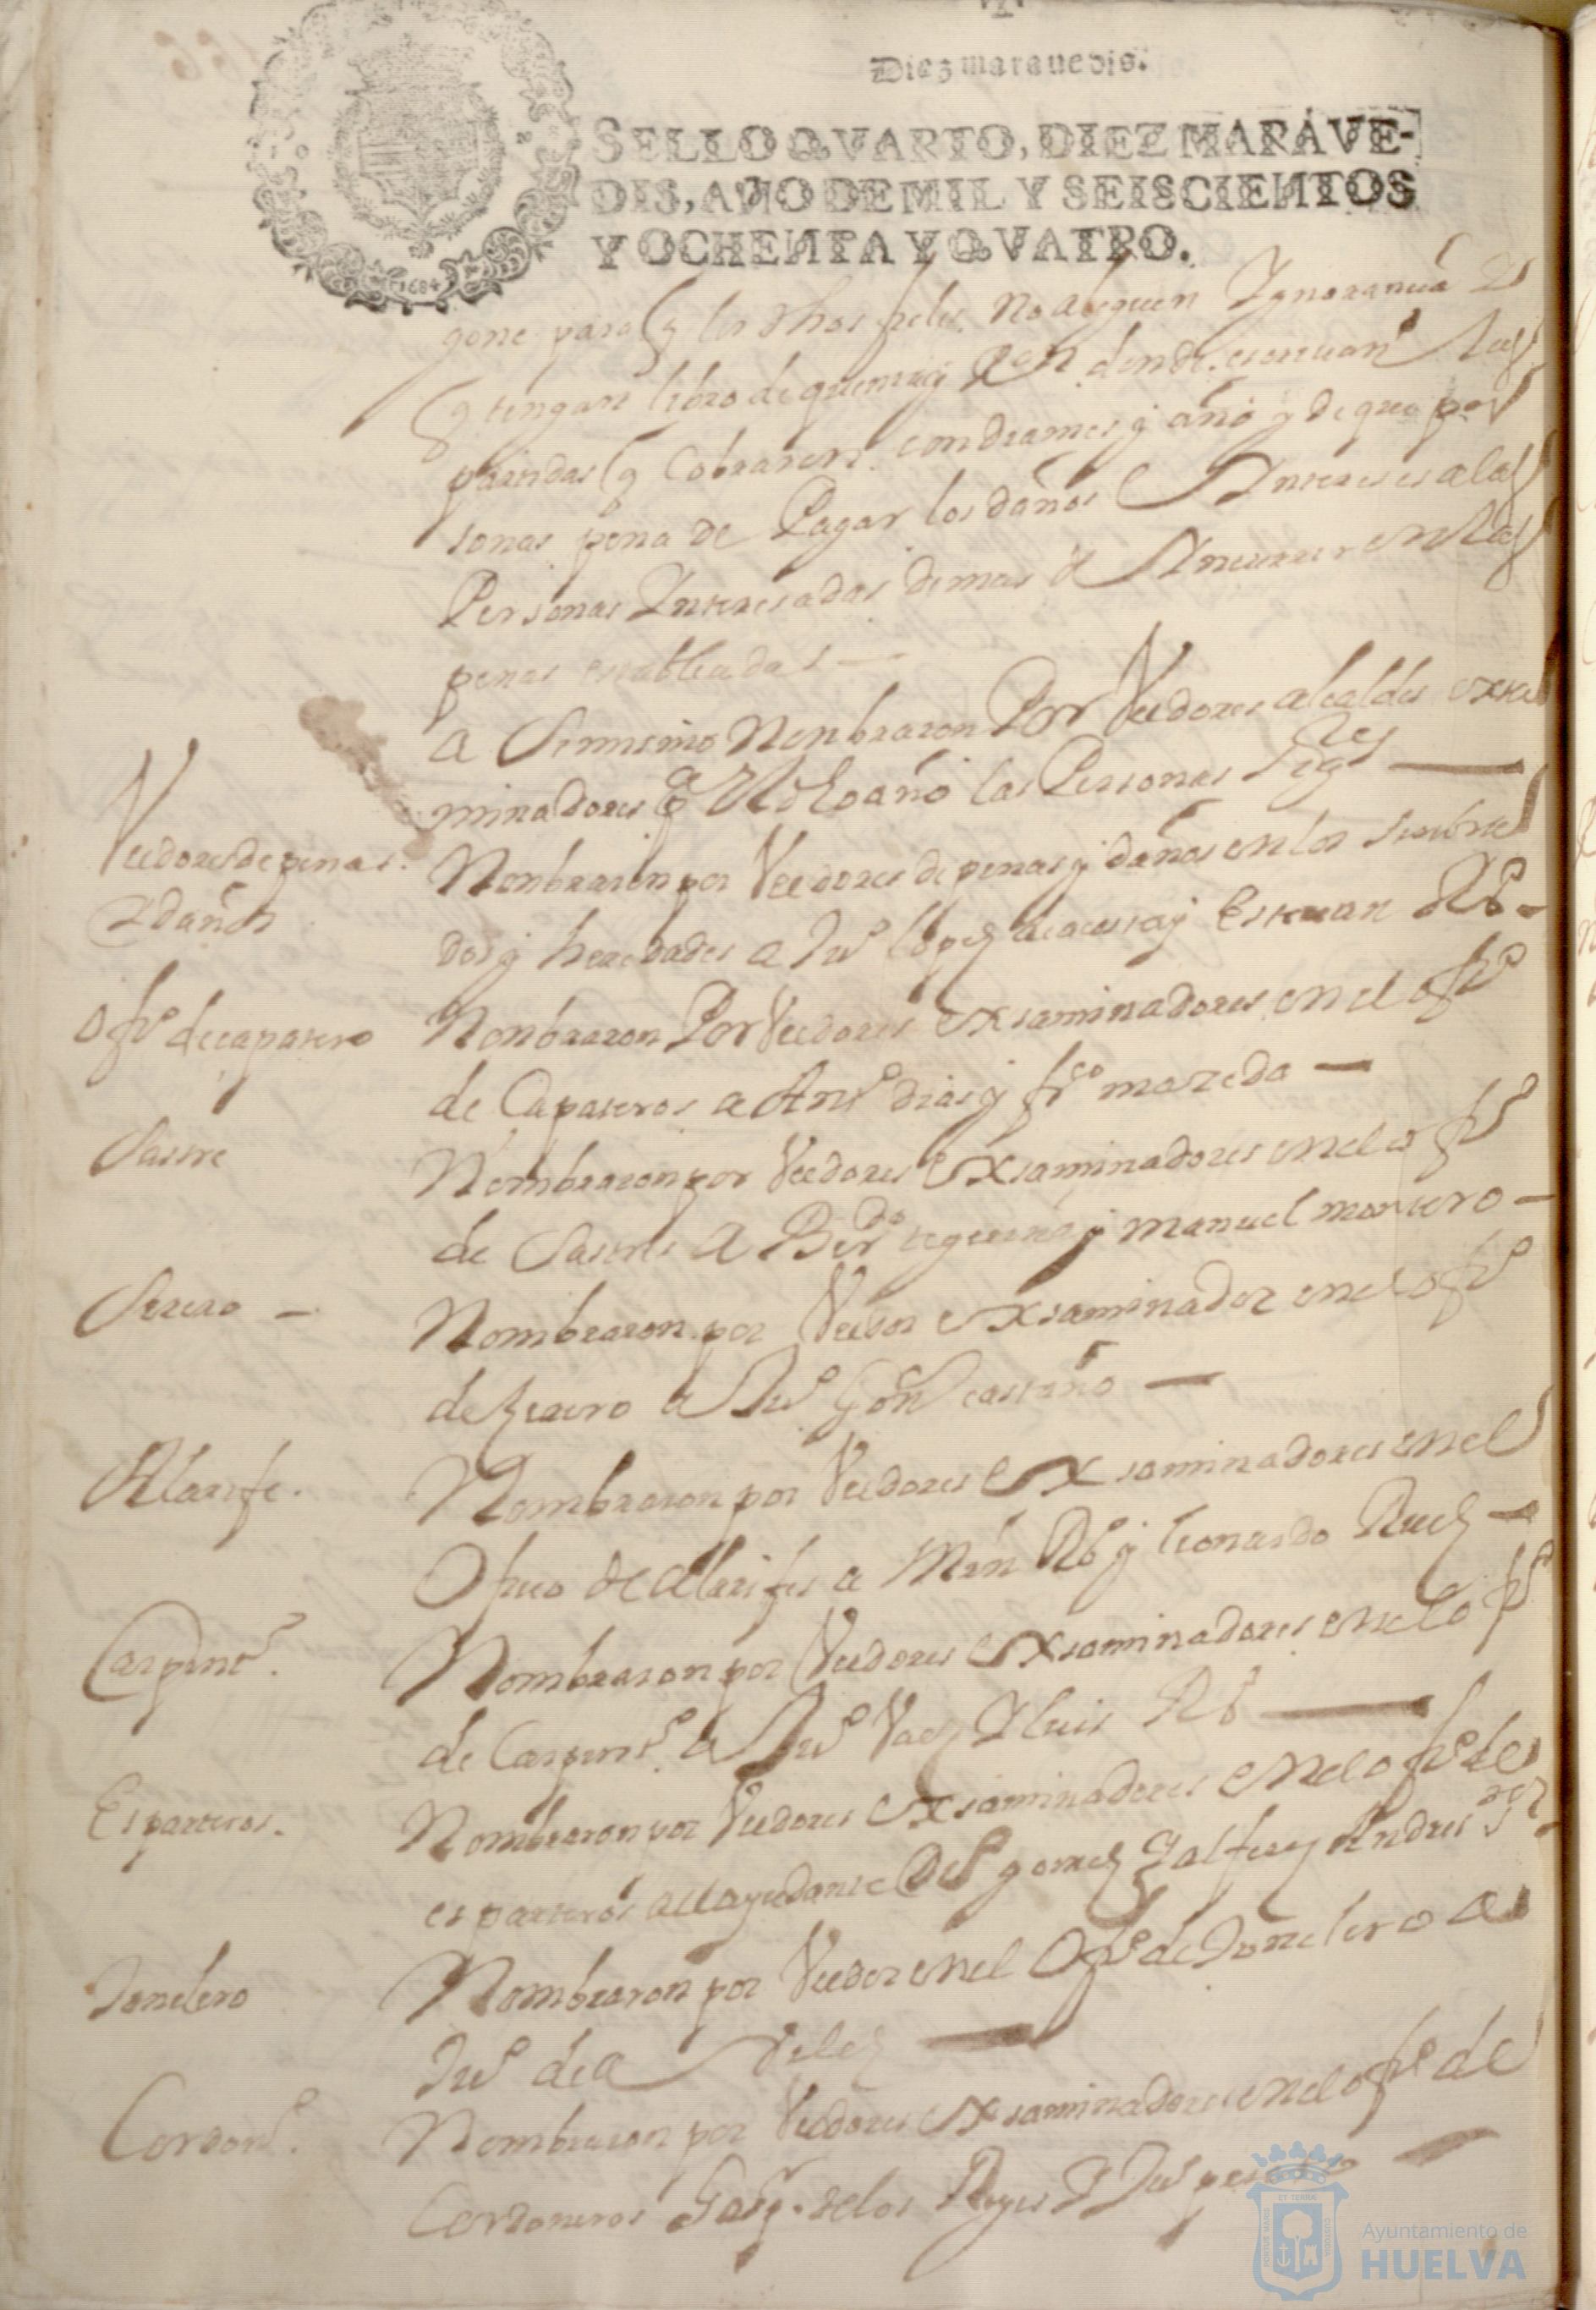 Diez marauedis.
SELLO QVARTO, DIEZ MARAVE-
DIS, AÑO DE MIL Y SEISCIENTOS
Y OCHENTA Y QVATRO.
1684
gone para q los dhos fieles no aleguen Ygnorancia
q tengan libro de quenta y Ron donde escriuan las
partidas q Cobraren con dia mes y año y de que per
sonas pena de Pagar los daños Yntereses a las
Personas Ynteresadas demas de Yncurrir en las
penas establecidas —
a Simismo Nonbraron Por Veedores alcaldes exsa
minadores este dho año las Personas sigtes —
Veedores de penas
Y daños
Nonbraron por Veedores de penas y daños en los senbra
dos y heredades a Juº lopez de acosta y Esteuan Rº —
ofº de capatero
Nonbraron Por Veedores exsaminadores en el ofº
de Capateros a Antº dias y frco mazedo —
Sastre
Nombraron por Veedores Exsaminadores en el ofº
de Sastres a Berdo y manuel montero —
Serero —
Nombraron por Veedor exsaminador en el ofº
de zerero a Juº Gon castaño —
Alarife.
Nombraron por Veedores Exsaminadores en el
Oficio de Alarifes a Mrn Rº y leonardo Ruiz —
Carpintº.
Nombraron por Veedores Exsaminadores en el ofº
de Carpintº a Juº Vaez Y luis Rº —
Esparteros.
Nombraron por Veedores Exsaminadores en el ofº de
esparteros al ayudante gomez Y alferez Andres
Tonelero
Nombraron por Veedor en el Ofº de Tonelero a
Juº de a
Cordonº.
Nombraron por Veedores Exsaminadores en el ofº de
Cordoneros Gasp. de los Reyes Y Juº
Ayuntamiento de
HUELVA